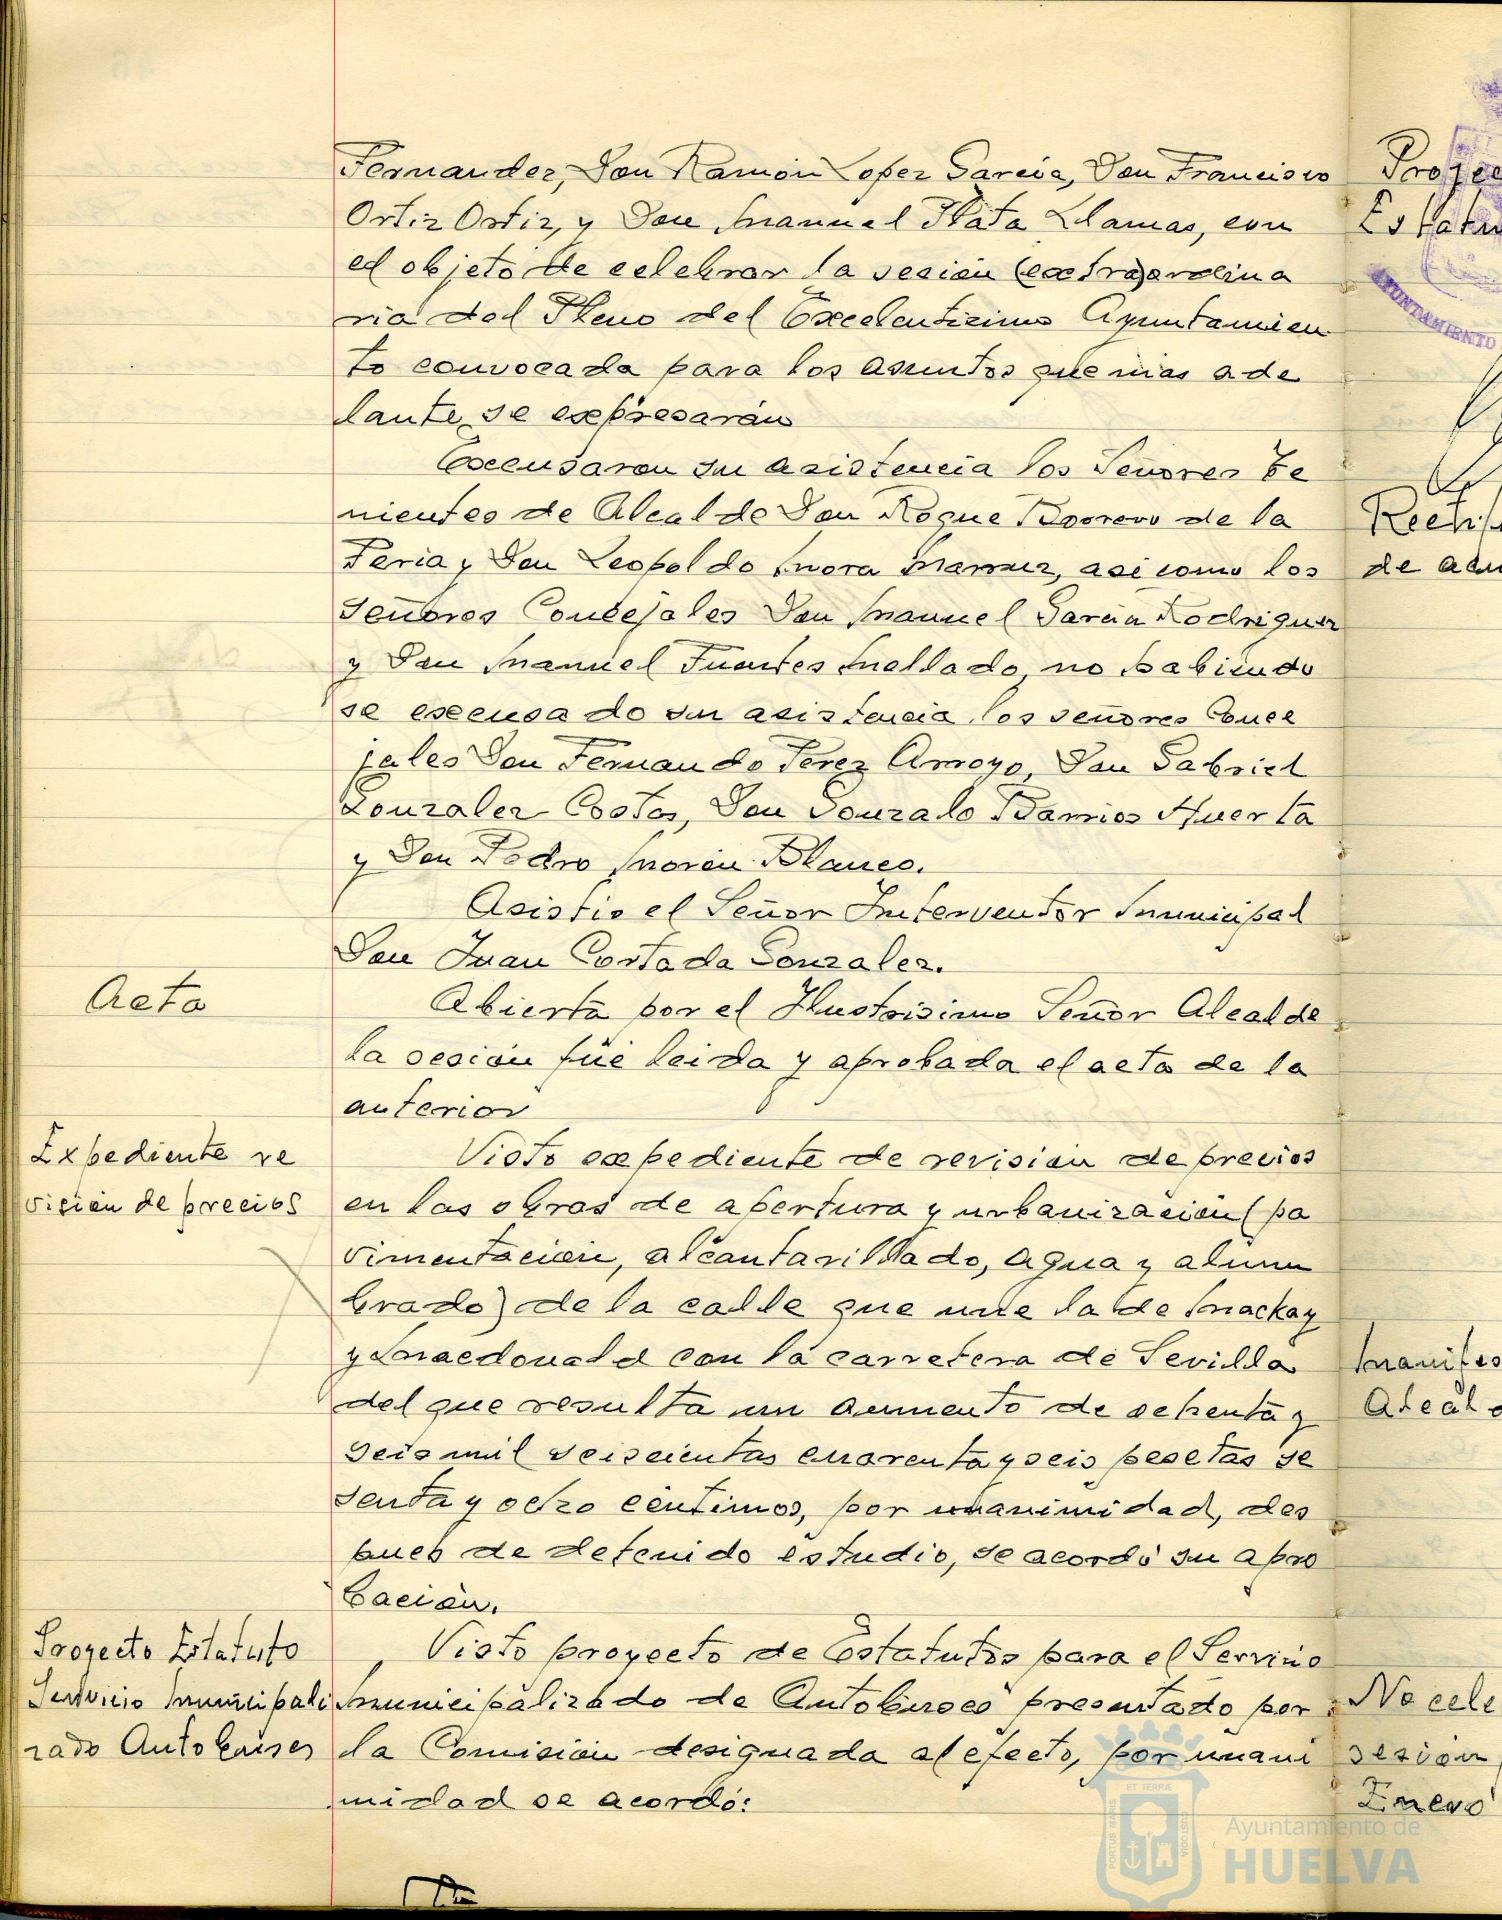 Fernandez, Don Ramón Lopez Garcia, Don Francisco
Ortiz Ortiz, y Don Manuel Plata Llamas, con
el objeto de celebrar la sesión (extra)ordina
ria del Pleno del Excelentisimo Ayuntamien
to convocada para los asuntos que mas ade
lante se expresarán
Excusaron su asistencia los Señores Te
nientes de Alcalde Don Roque Borrero de la
Feria y Don Leopoldo Mora, asi como los
Señores Concejales Don Manuel Garcia Rodriguez
y Don Manuel Fuentes Mellado, no habiendo
se excusado su asistencia los señores Conce
jales Don Fernando Perez Arroyo, Don Gabriel
Gonzalez Costas, Don Gonzalo Barrios Huerta
y Don Pedro Morón Blanco.
Asistio el Señor Interventor Municipal
Don Juan Cortada Gonzalez.
Acta
Abierta por el Ilustrisimo Señor Alcalde
la sesión fué leida y aprobada el acta de la
anterior
Expediente re
visión de precios
Visto expediente de revisión de precios
en las obras de apertura y urbanización (pa
vimentación, alcantarillado, agua y alum
brado) de la calle que une la de Mackay
y Macdonald con la carretera de Sevilla
del que resulta un aumento de setenta y
seis mil seiscientas cuarenta y seis pesetas se
senta y ocho centimos, por unanimidad, des
pues de detenido estudio, se acordó su apro
bación.
Proyecto Estatuto
Servicio Municipali
zado Autobuses
Visto proyecto de Estatutos para el Servicio
Municipalizado de Autobuses presentado por
la Comisión designada al efecto, por unani
midad se acordó:
Proyec
Estatu
AYUNTAMIENTO
Rectif
de acu
Manifes
Alcal
No cele
sesión
Enero
Ayuntamiento de
HUELVA